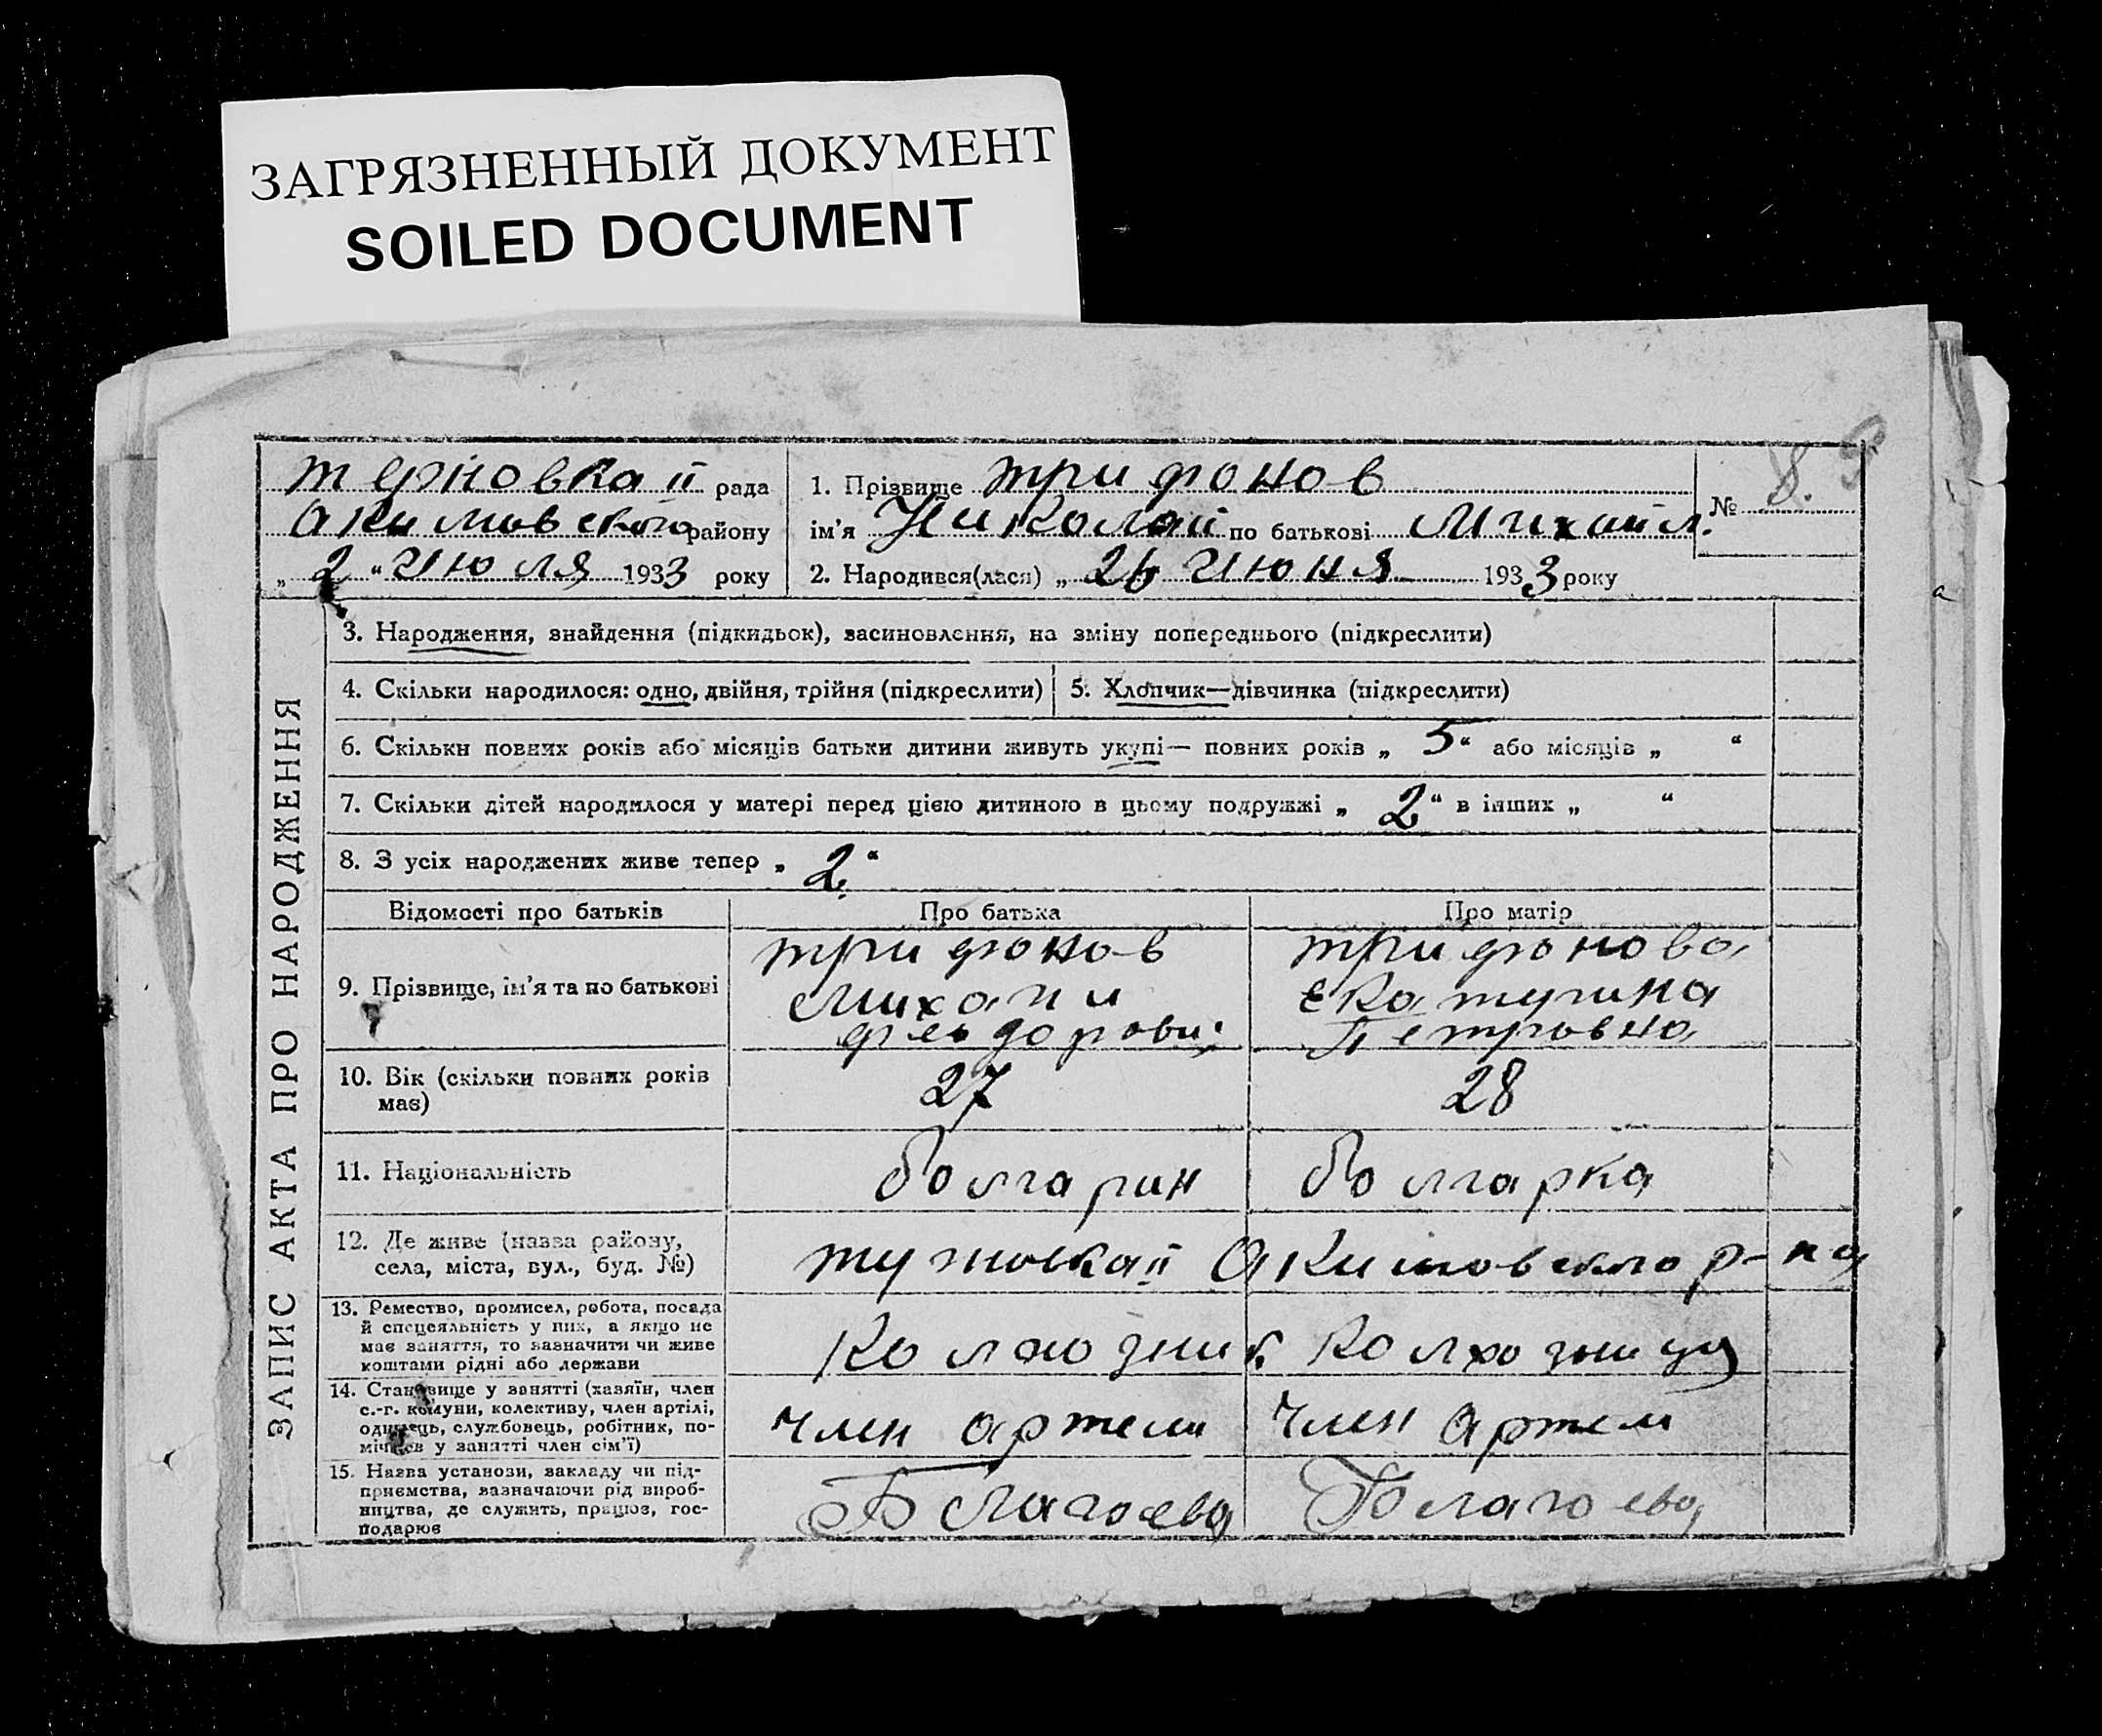 ЗАГРЯЗНЕННЫЙ ДОКУМЕНТ
SOILED DOCUMENT
терновкаӥ рада
акимовского району
„ 2 “ июля 1933 року
1. Прізвище трифонов
ім’я Николай по батькові Михайл.
2. Народився(лася) „ 26 июня 1933 року
№ 8.
ЗАПИС АКТА ПРО НАРОДЖЕННЯ
3. Народження, знайдення (підкидьок), засиновлення, на зміну попереднього (підкреслити)
4. Скільки народилося: одно, двійня, трійня (підкреслити)
5. Хлопчик—дівчинка (підкреслити)
6. Скільки повних років або місяців батьки дитини живуть укупі— повних років „ 5 “ або місяців „ “
7. Скільки дітей народилося у матері перед цією дитиною в цьому подружжі „ 2 “ в інших „ “
8. З усіх народжених живе тепер „ 2 “
Відомості про батьків Про батька Про матір
9. Прізвище, ім’я та по батькові
трифонов
Михаил
феодорович
трифонова
Екатерина
Петровна
10. Вік (скільки повних років
має)
27 28
11. Національність болгарин болгарка
12. Де живе (назва району,
села, міста, вул., буд. №)
Акимовского р-на
13. Ремество, промисел, робота, посада
й спецеяльність у них, а якщо не
має заняття, то зазначити чи живе
коштами рідні або держави
Колхозник Колхозница
14. Становище у занятті (хазяїн, член
с.-г. комуни, колективу, член артілі,
одинець, службовець, робітник, по-
мічник у занятті член сім’ї)
Член артели Член артели
15. Назва установи, закладу чи під-
приємства, зазначаючи рід вироб-
ництва, де служить, працює, гос-
подарює
Благоева Благоева